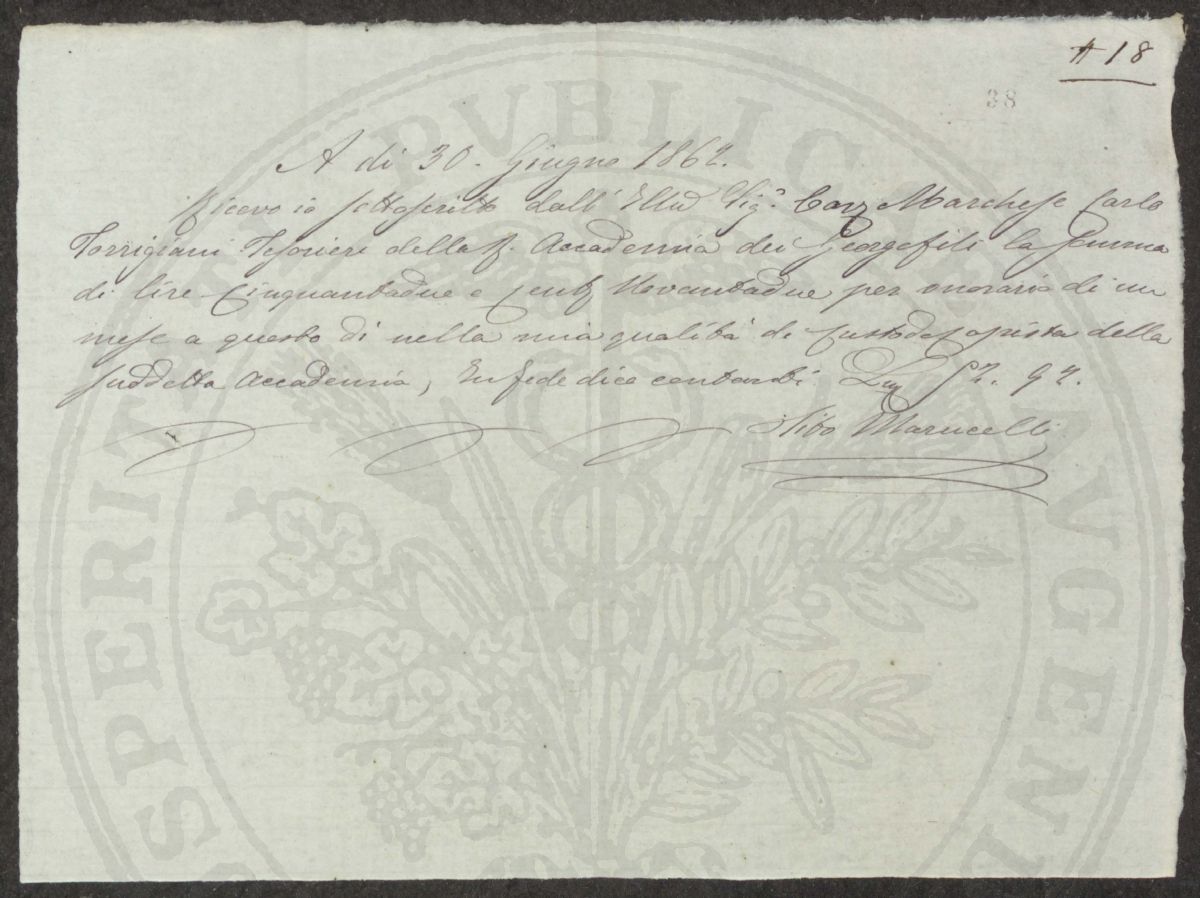 # 18
38
A dì 30. Giugno 1862.
Ricevo io sottoscritto dall' Illmo Sig.r Cav. Marchese Carlo
Torrigiani Tesoriere della R. Accademia dei Georgofili la somma
di lire Cinquantadue e Cent. Novantadue per onorario di un
mese a questo dì nella mia qualità di Custode Copista della
suddetta Accademia, In fede dico contanti 52. 92.
Marucelli
PROSPERITATI PVBLICAE AVGENDAE